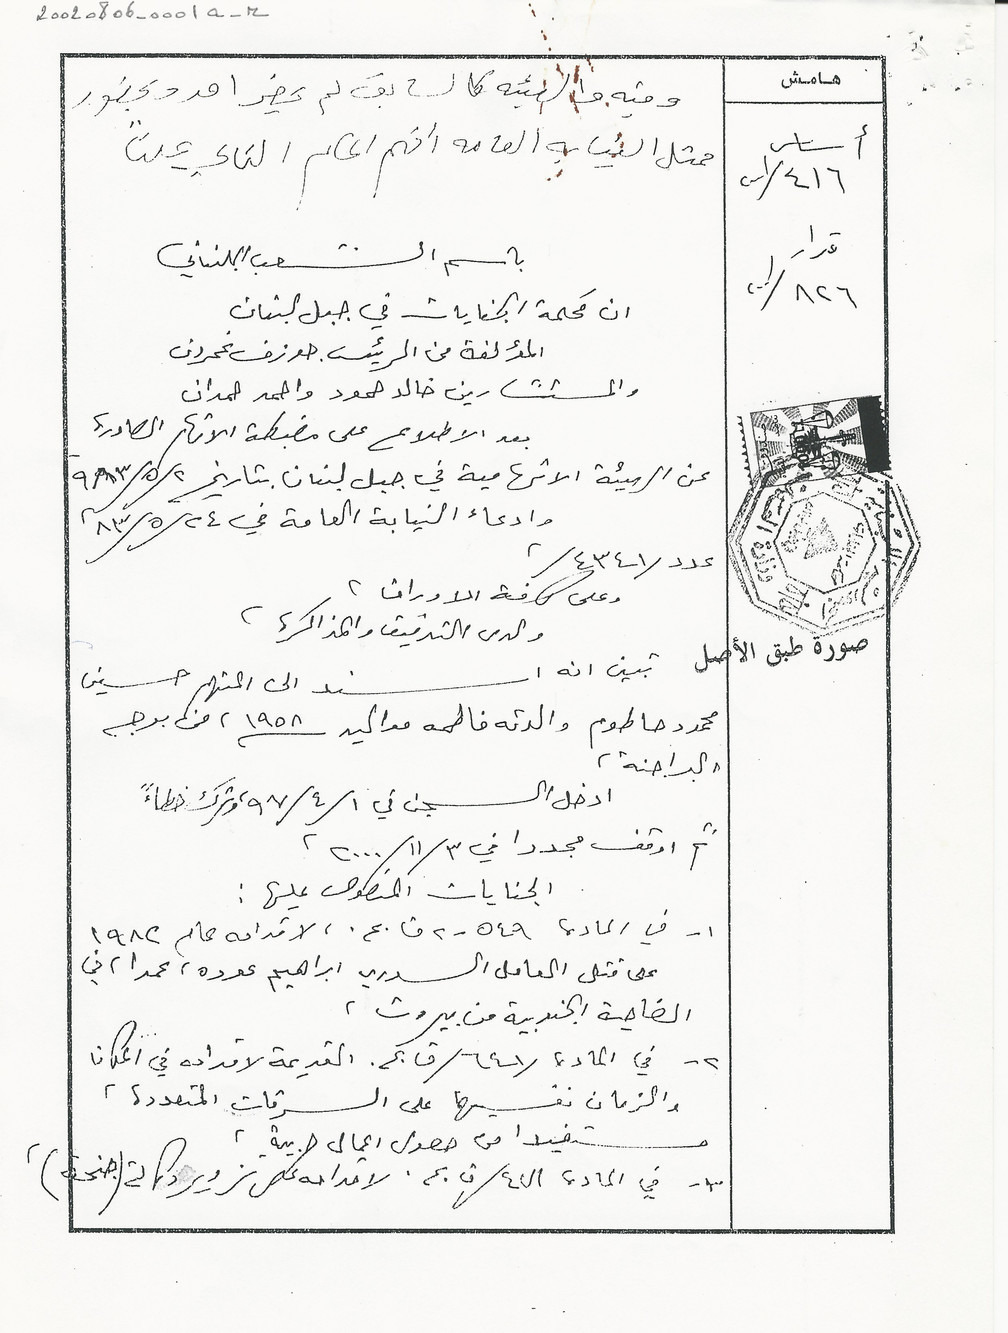 20020806_0001a_r
هامش
وفيه والهيئة كالسابق لم يحضر احد وبحضور
ممثل النيابة العامه افهم الحكم التالي علناً
أساس
٤١٦/
قرار
٨٢٦/
باسم الشعب اللبناني
ان محكمة الجنايات في جبل لبنان
المؤلفة من الرئيس جوزف
والمستشارين خالد حمود واحمد حمدان
بعد الاطلاع على مضبطة الاتهام الصادرة
عن الهيئة الاتهامية في جبل لبنان بتاريخ ٢/٥/٩٨٣
وادعاء النيابة العامة في ٢٤/٥/٨٣
عدد /٤٣٤١/
وعلى كافة الاوراق،
ولدى التدقيق والمذاكرة،
صورة طبق الأصل
تبين انه اسند الى المتهم حسين
محمود حاطوم والدته فاطمه مواليد ١٩٥٨، من برج
البراجنة،
ادخل السجن في ١/٤/٩٨٧، وترك خطاءً
ثم اوقف مجددا في ٣/١١/٢٠٠٠،
الجنايات المنصوص عليها:
١- في المادة ٥٤٩-٢ ق.ع.، لاقدامه عام ١٩٨٢
على قتل العامل السوري ابراهيم عوده، عمدا، في
الضاحية الجنوبية من بيروت،
٢- في المادة /٦٤١/ ق.ع. القديمة لاقدامه في المكان
والزمان نفسيهما على السرقات المتعددة،
مستفيدا من حصول اعمال حربية،
٣- في المادة ال/ ق.ع. لاقدامه على تزوير (جنحة)،